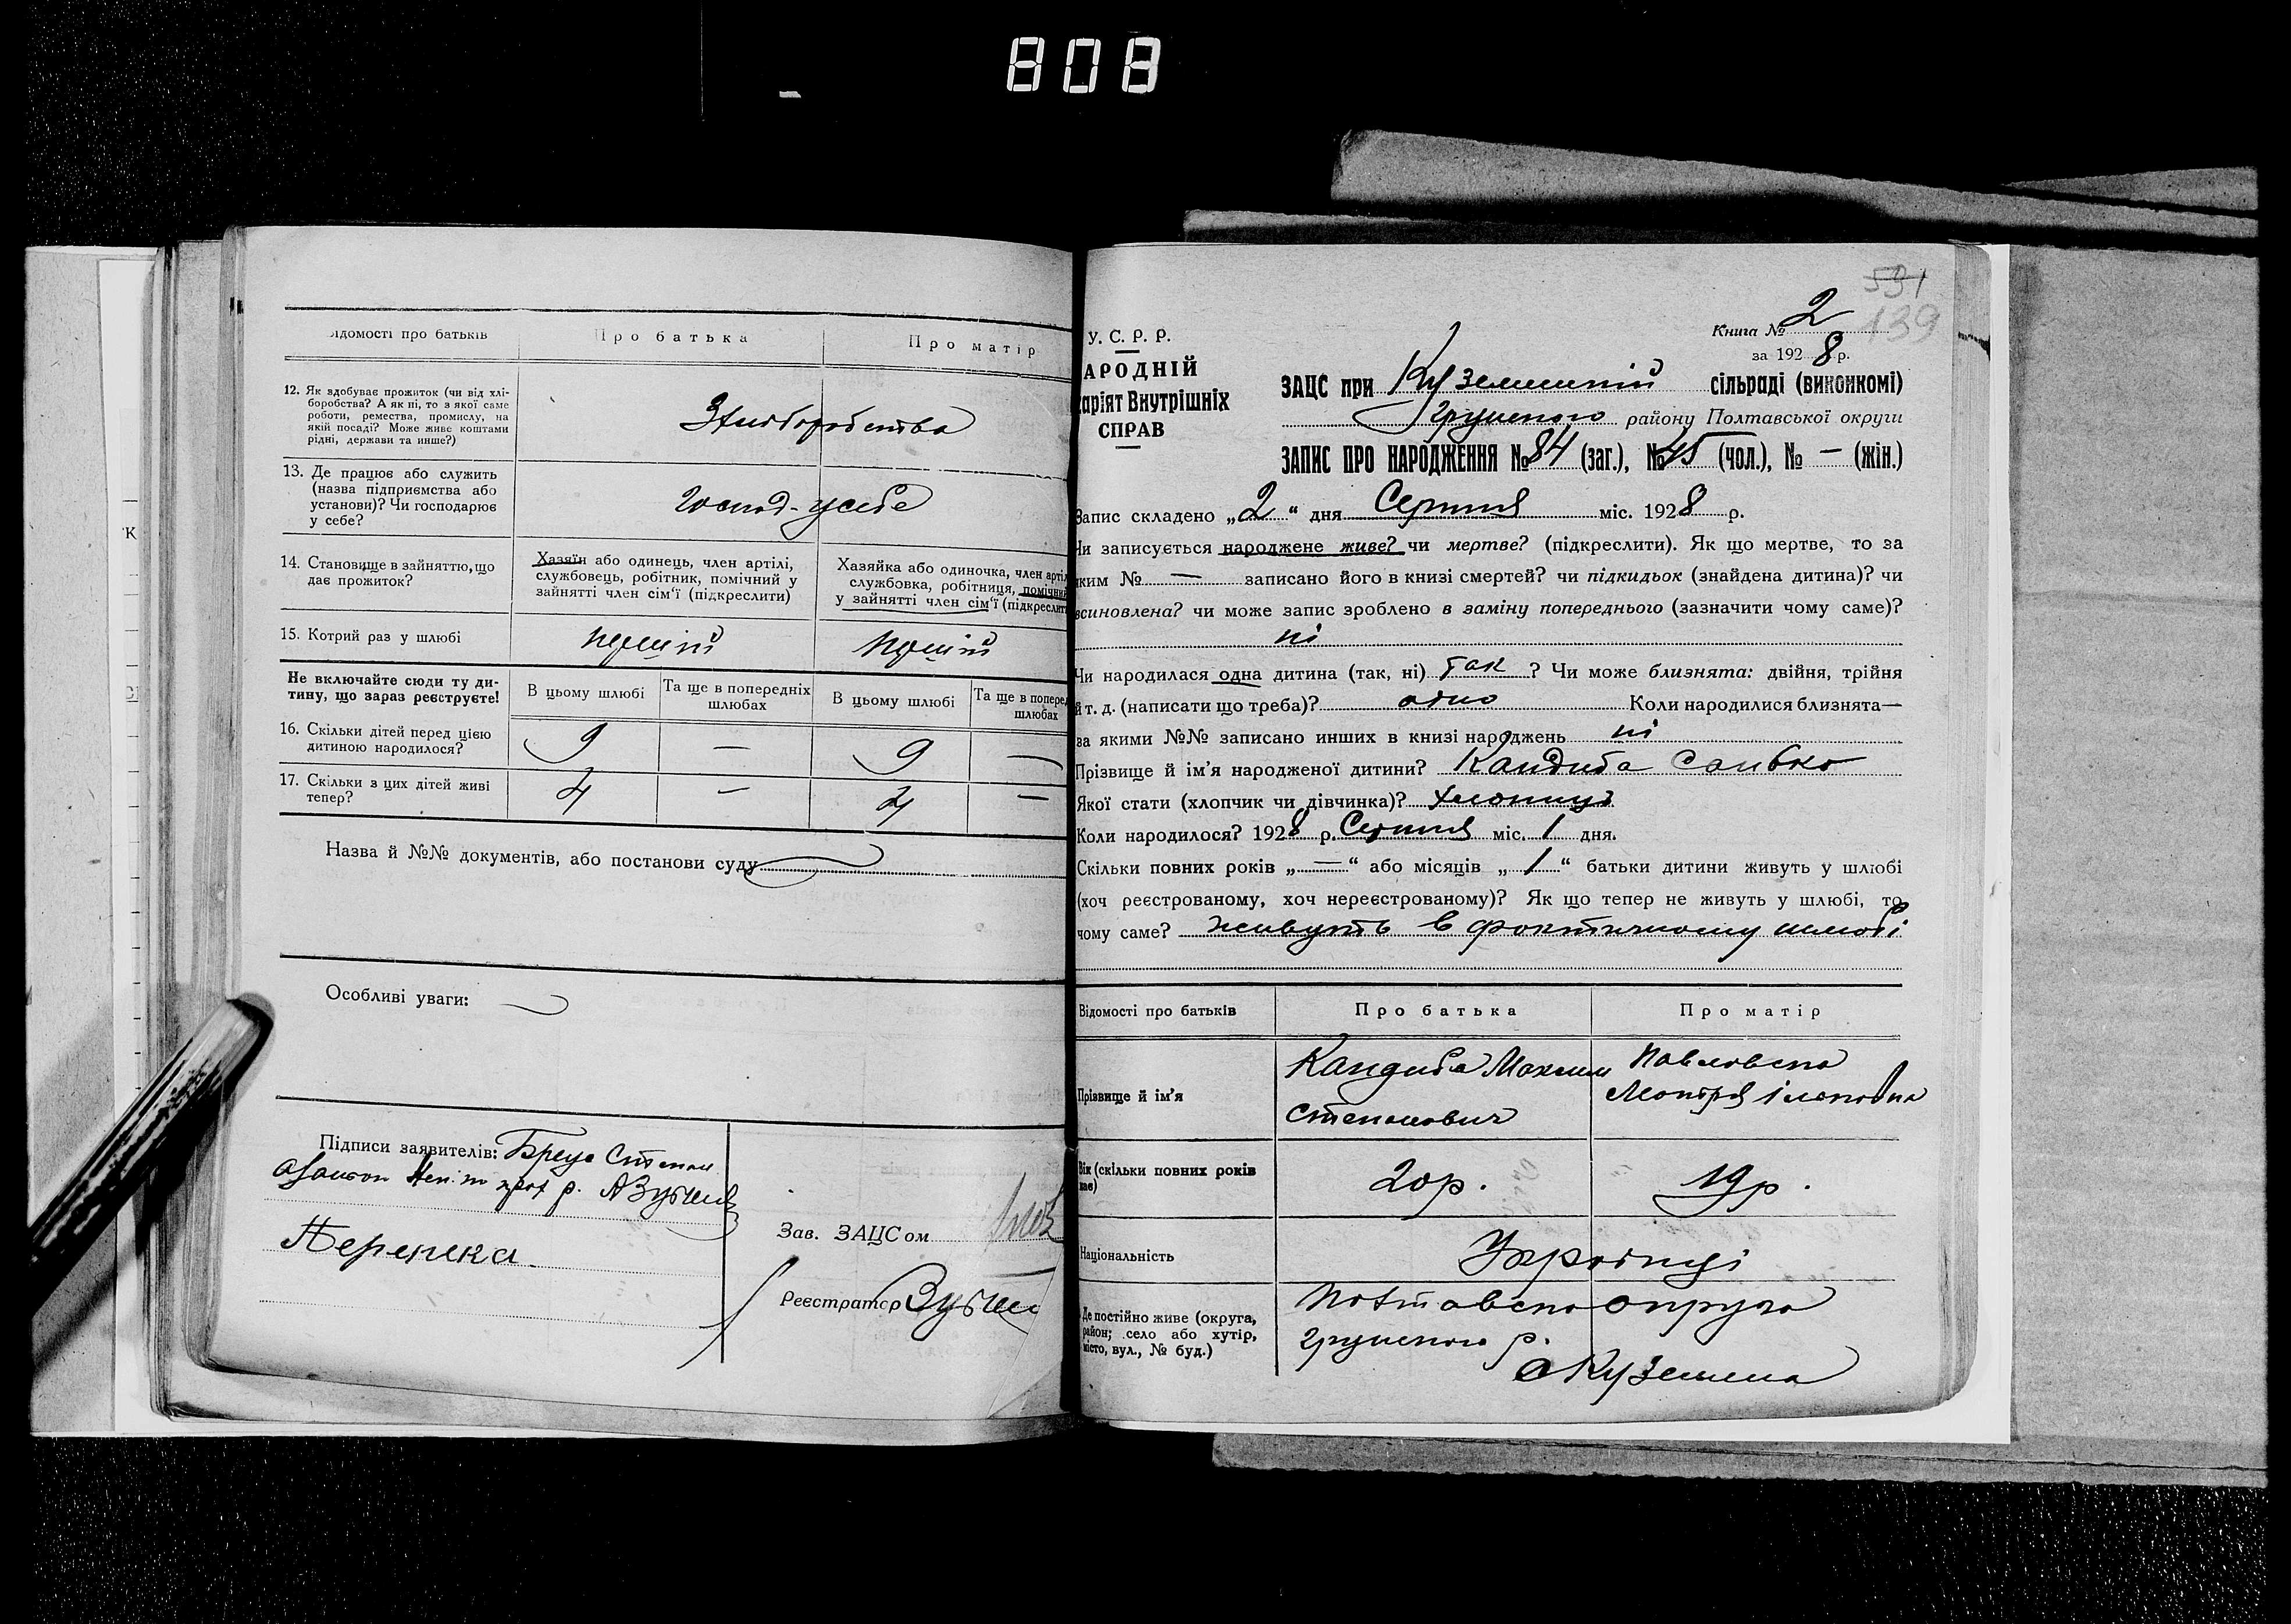 808
Відомості про батьків
Про батька
Про матір
12. Як здобуває прожиток (чи від хлі-
боробства? А як ні, то з якої саме
роботи, ремества, промислу, на
якій посаді? Може живе коштами
рідні, держави та инше?)
З хліборобства
13. Де працює або служить
(назва підприємства або
установи)? Чи господарює
у себе?
господ. у себе
14. Становище в зайняттю, що
дає прожиток?
Хазяїн або одинець, член артілі,
службовець, робітник, помічний у
зайнятті член сім'ї (підкреслити)
Хазяйка або одиночка, член артіл
службовка, робітниця, помічний
у зайнятті член сім'ї (підкреслити
15. Котрий раз у шлюбі
перший
перший
Не включайте сюди ту ди-
тину, що зараз реєструєте!
В цьому шлюбі
Та ще в попередніх
шлюбах
В цьому шлюбі
Та ще в поперед
шлюбах
16. Скільки дітей перед цією
дитиною народилося?
9 — 9 —
17. Скільки з цих дітей живі
тепер?
4 — 4 —
Назва й №№ документів, або постанови суду
Особливі уваги:
Підписи заявителів: Бреус Степан
Перепека
Зав. ЗАЦСом
Реєстратор
531
139
У. С. Р. Р.
АРОДНІЙ
аріят Внутрішніх
СПРАВ
Книга № 2
за 1928 р.
ЗАЦС при Куземській сільраді (виконкомі)
Грунського району Полтавської округи
ЗАПИС ПРО НАРОДЖЕННЯ № 84 (заг.), № 45 (чол.), № — (жін.)
Запис складено „2“ дня Серпня міс. 1928 р.
Чи записується народжене живе? чи мертве? (підкреслити). Як що мертве, то за
яким № — записано його в книзі смертей? чи підкидьок (знайдена дитина)? чи
всиновлена? чи може запис зроблено в заміну попереднього (зазначити чому саме)?
ні
Чи народилася одна дитина (так, ні) так ? Чи може близнята: двійня, трійня
й т. д. (написати що треба)? одно Коли народилися близнята—
за якими №№ записано инших в книзі народжень ні
Прізвище й ім'я народженої дитини? Кандиба Савко
Якої стати (хлопчик чи дівчинка)? хлопець
Коли народилося? 1928 р. Серпня міс. 1 дня.
Скільки повних років „—“ або місяців „1“ батьки дитини живуть у шлюбі
(хоч реєстрованому, хоч нереєстрованому)? Як що тепер не живуть у шлюбі, то
чому саме? живуть в фактичному шлюбі
Відомості про батьків
Про батька
Про матір
Прізвище й ім'я
Кандиба Максим
Степанович
Павловська
Мотря
Вік (скільки повних років
має)
20 р.
19 р.
Національність
Українці
Де постійно живе (округа,
район; село або хутір,
місто, вул., № буд.)
Полтавська округа
Грунського р.
с Куземина